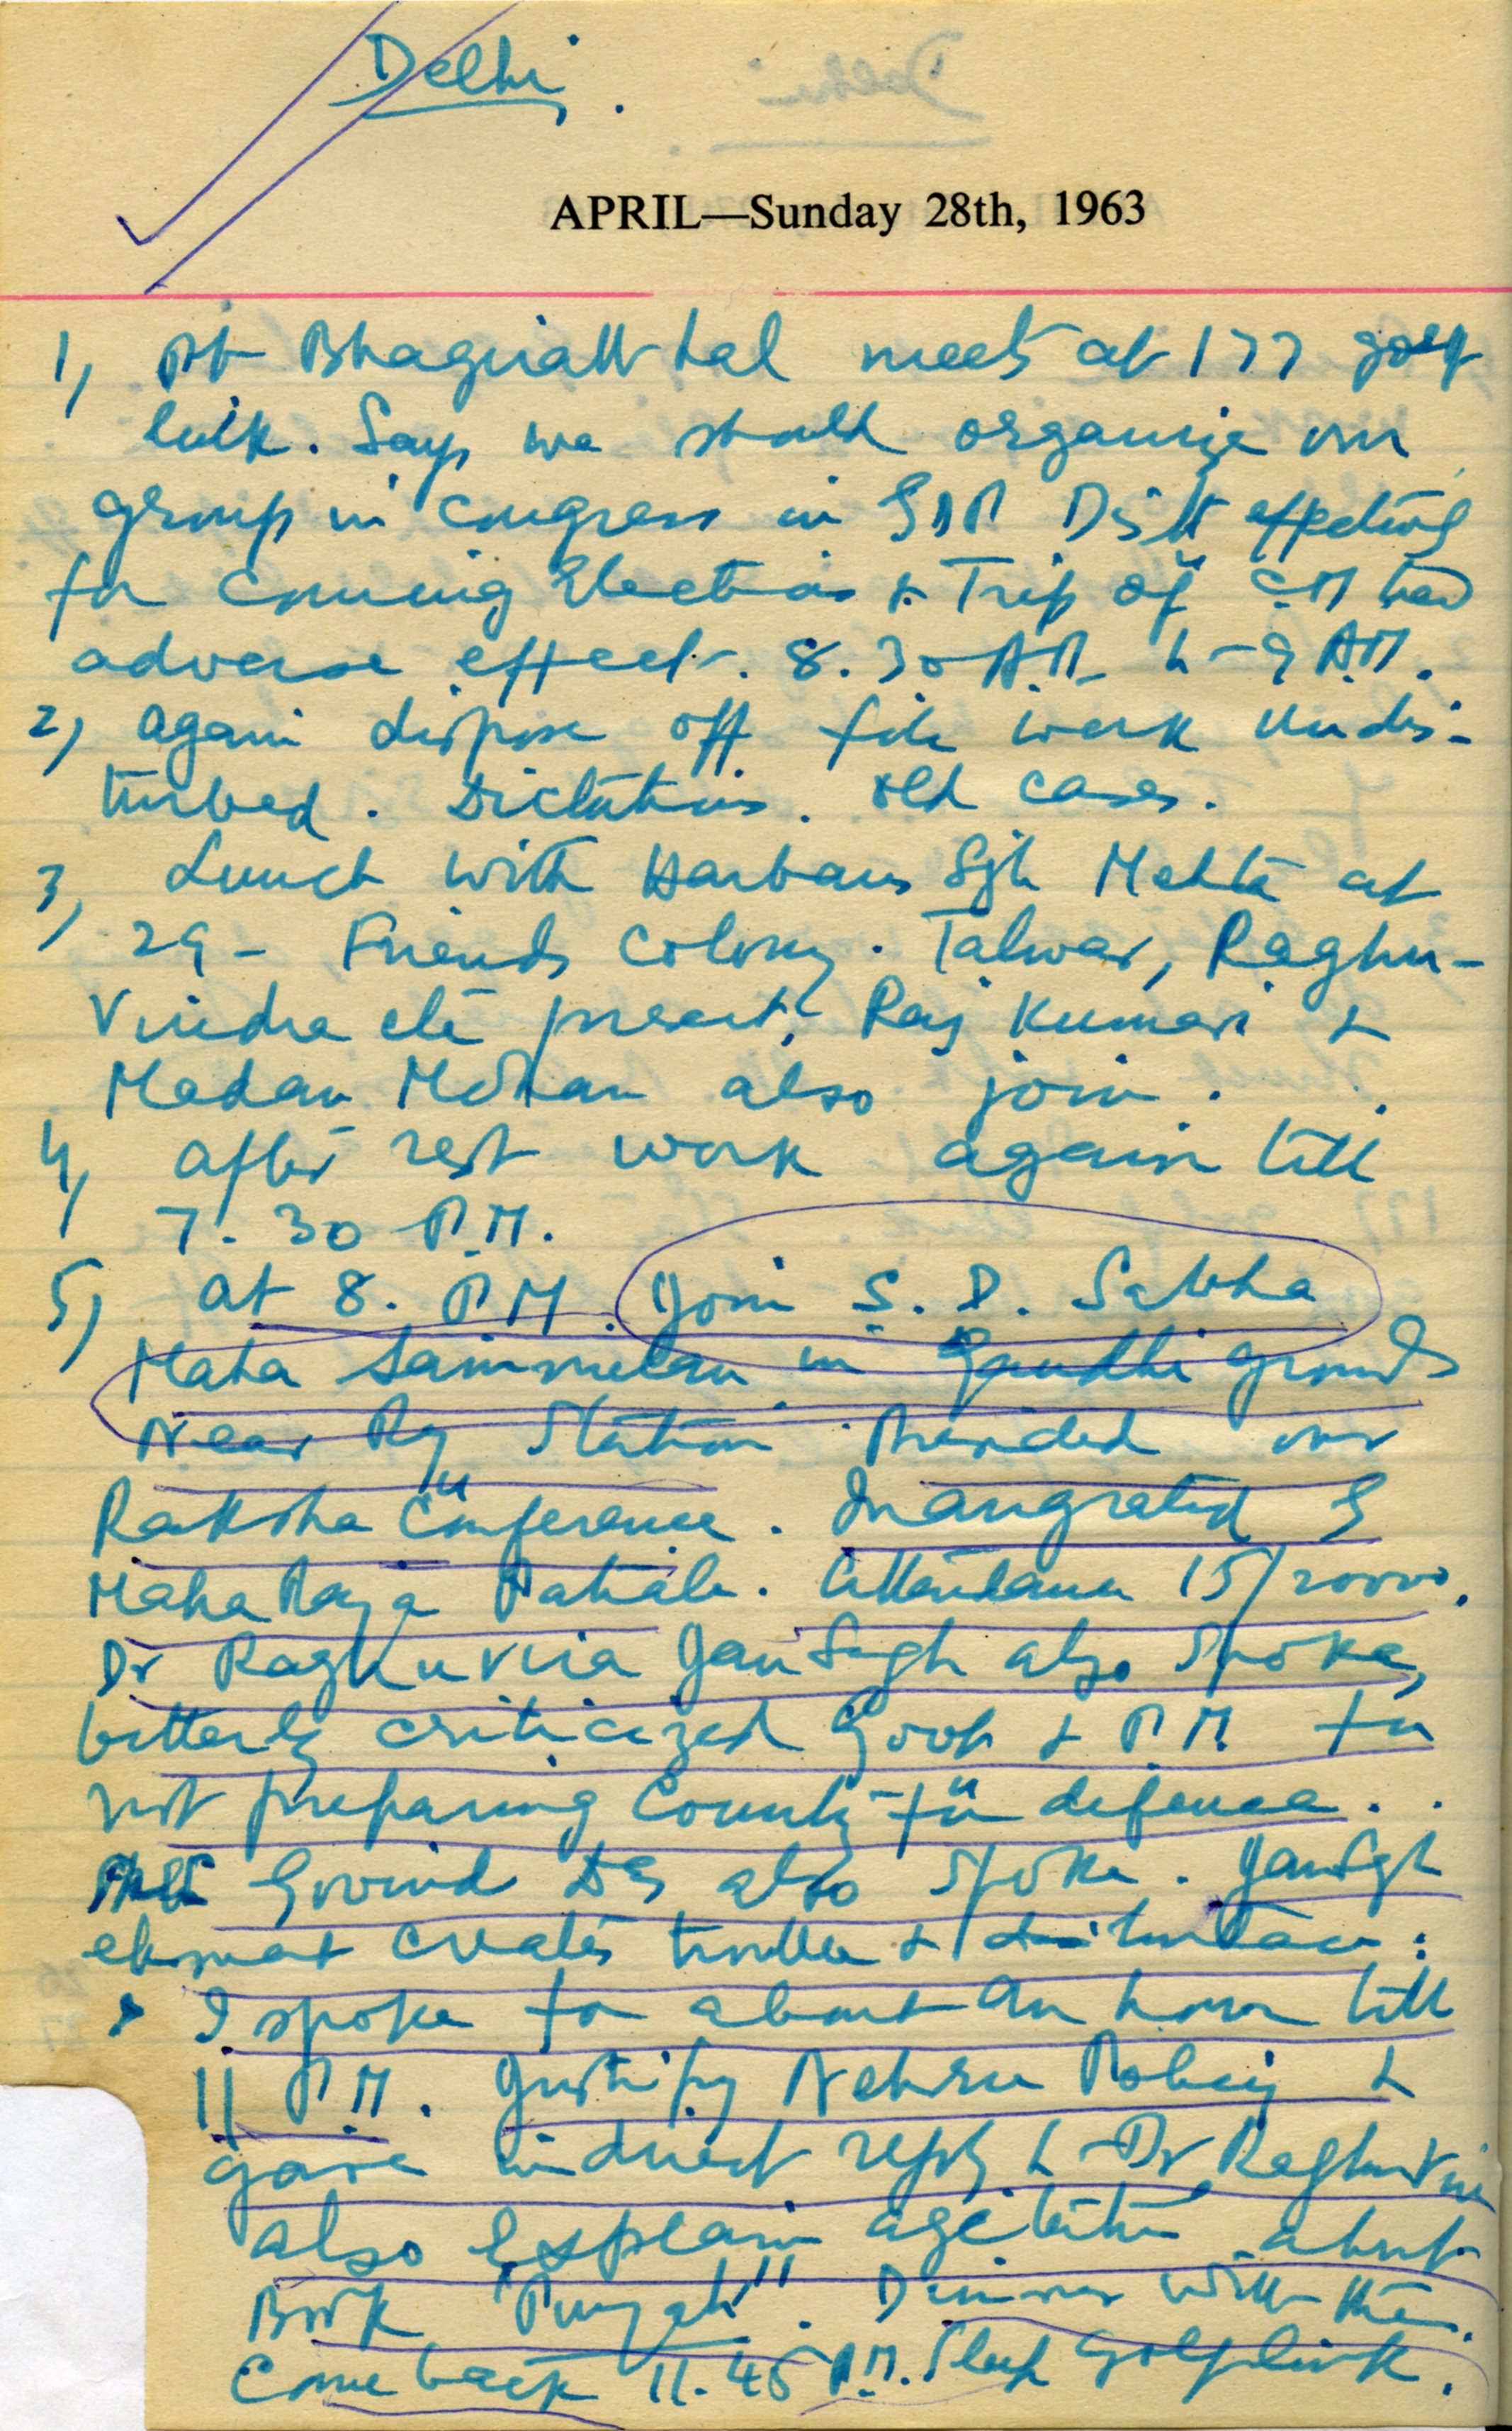 Delhi.
APRIL—Sunday 28th, 1963
1, Pt Bhagirath Lal meets at 177 golf
link. Says we should organize our
group in Congress in Distt effectively
for coming Elections & Trip of C.M had
adverse effect. 8.30 A.M. to 9 A.M.
2, again dispose off file work undis-
turbed. Dictations. old cases.
3, Lunch with Harbans Sgh Mehta at
29 - Friends Colony. Talwar, Raghu-
Vindra etc present. Raj Kumari &
Madan Mohan also join.
4, after rest work again till
7.30 P.M.
5, at 8. P.M. Join S. D. Sabha
Maha Sammelan in Gandhi grounds
Near Ry Station. Presided over
Raksha Conference. Inaugrated by
MahaRaja Patiala. Attendance 15/20000.
Dr Raghuvira JanSagh also spoke,
bitterly criticized Govt & P.M. for
not preparing Country for defence.
Govind Das also spoke. JanSgh
element creates trouble &
I spoke for about an hour till
11 P.M. Justify Nehru Policy &
gave indirect reply to Dr Raghuvira
also Explain agitation about
Book "Punjab". Dinner with them.
Come back 11.45 P.M. Sleep Golflink.